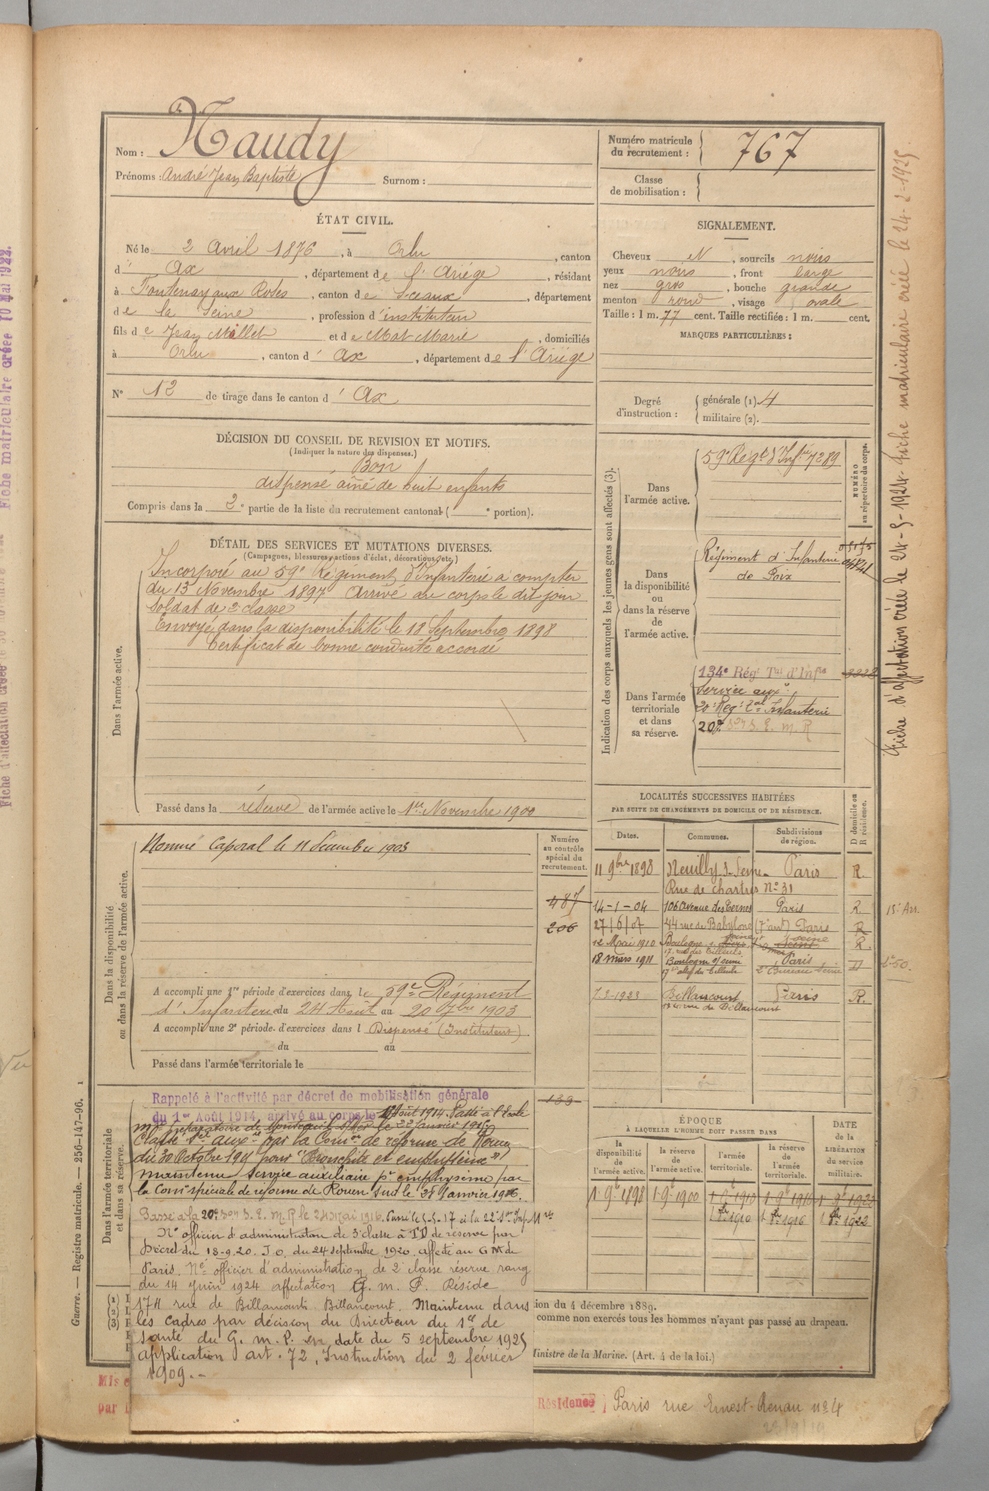 Nom : Naudy
Prénoms : André Jean Baptiste Surnom :
Numéro matricule du recrutement : 767
Classe de mobilisation :
ÉTAT CIVIL.
Né le 2 Avril 1876, à Orlu, canton
d' Ax, département de l'Ariège, résidant
à Fontenay aux Roses, canton de Sceaux, département
de la Seine, profession d'instituteur
fils de Jean Millet et de Mat Marie, domiciliés
à Orlu, canton d' Ax, département de l'Ariège
N° 12 de tirage dans le canton d' Ax
SIGNALEMENT.
Cheveux N, sourcils noirs
yeux noirs, front large
nez gros, bouche grande
menton rond, visage ovale
Taille : 1 m. 77 cent. Taille rectifiée : 1 m. cent.
MARQUES PARTICULIÈRES :
Degré d'instruction : générale (1) 4
militaire (2).
DÉCISION DU CONSEIL DE REVISION ET MOTIFS.
(Indiquer la nature des dispenses.)
Bon
dispensé aîné de huit enfants
Compris dans la 2e partie de la liste du recrutement cantonal ( e portion).
DÉTAIL DES SERVICES ET MUTATIONS DIVERSES.
(Campagnes, blessures, actions d'éclat, décorations, etc.)
Dans l'armée active.
Incorporé au 59e Régiment d'Infanterie à compter
du 13 Novembre 1897 Arrivé au corps le dit jour
soldat de 2e classe
Envoyé dans la disponibilité le 18 Septembre 1898
Certificat de bonne conduite accordé
Passé dans la réserve de l'armée active le 1er Novembre 1900
Indication des corps auxquels les jeunes gens sont affectés (3).
NUMÉRO au répertoire du corps.
Dans l'armée active.
59e Régt d'Infie 7289
Dans la disponibilité ou dans la réserve de l'armée active.
Régiment d'Infanterie
de Foix
Dans l'armée territoriale et dans sa réserve.
134e Rég Tal d'Infie
Service auxre
20e Reg. Tal Infanterie
20e Son S. E. M. R
LOCALITÉS SUCCESSIVES HABITÉES
PAR SUITE DE CHANGEMENTS DE DOMICILE OU DE RÉSIDENCE.
Dates. Communes. Subdivisions de région. D domicile ou R résidence.
11 9bre 1898 Neuilly s. Seine Paris R.
Rue de chartres N° 31
14-1-04 106 Avenue des Ternes Paris R. 15e Arr.
27/6/07 44 rue de Babylone (7e art) Paris R
12 Mai 1910 Boulogne s. Seine R.
18 mars 1911 Boulogne s/ Seine Paris D
7.2-1923 Billancourt Paris R.
174 rue de Billancourt
Dans la disponibilité ou dans la réserve de l'armée active.
Nommé Caporal le 11 Décembre 1903
Numéro au contrôle spécial du recrutement.
487
206
A accompli une 1re période d'exercices dans le 59e Régiment
d'Infanterie du 24 Août au 20 7bre 1903
A accompli une 2e période d'exercices dans l Dispensé (Instituteur)
du au
Passé dans l'armée territoriale le
Dans l'armée territoriale et dans sa réserve.
133
Rappelé à l'activité par décret de mobilisation générale
du 1er Août 1914, arrivé au corps le Août 1914 Passé à l'Ecole
le 22 janvier 1915
Classé Sce auxre par la Comon de réforme de Rouen
du 30 Octobre 1915 pour "Bronchite et emphysème"
maintenu Service auxiliaire pr emphysème par
la Comon spéciale de réforme de Rouen Sud le 31 Janvier 1916.
Passé à la 20e Son S. E. M. R le 24 mai 1916. Passé le 5-5-17 à la 22e Son Inf Mre
Né officier d'administration de 3e classe à T.D de réserve par
Décret du 18-9-20. J.O. du 24 septembre 1920. affecté au G.M. de
Paris. Né officier d'administration de 2e classe réserve rang
du 14 juin 1924 affectation G. M. P. Réside
174 rue de Billancourt Billancourt. Maintenu dans
les cadres par décision du Directeur du Sce de
santé du G. M. P. en date du 5 septembre 1925
application art. 72, Instruction du 2 février
1909.-
ÉPOQUE
À LAQUELLE L'HOMME DOIT PASSER DANS
la disponibilité de l'armée active. la réserve de l'armée active. l'armée territoriale. la réserve de l'armée territoriale. DATE de la LIBÉRATION du service militaire.
1 9e 1898 1 9e 1900 1 9e 1910 1 9e 1916 1 9e 1922
1 8re 1910 1 8re 1916 1 8re 1922
(1)
(2)
(3)
ion du 4 décembre 1889.
comme non exercés tous les hommes n'ayant pas passé au drapeau.
Ministre de la Marine. (Art. 4 de la loi.)
Mis e
par l
Résidence Paris rue Ernest-Renan n° 4
Guerre. — Registre matricule. — 256-147-96.
Fiche d'affectation créée le 24-5-1924. Fiche matriculaire créée le 24-2-1925
Fiche matriculaire créée 10 Mai 1922.